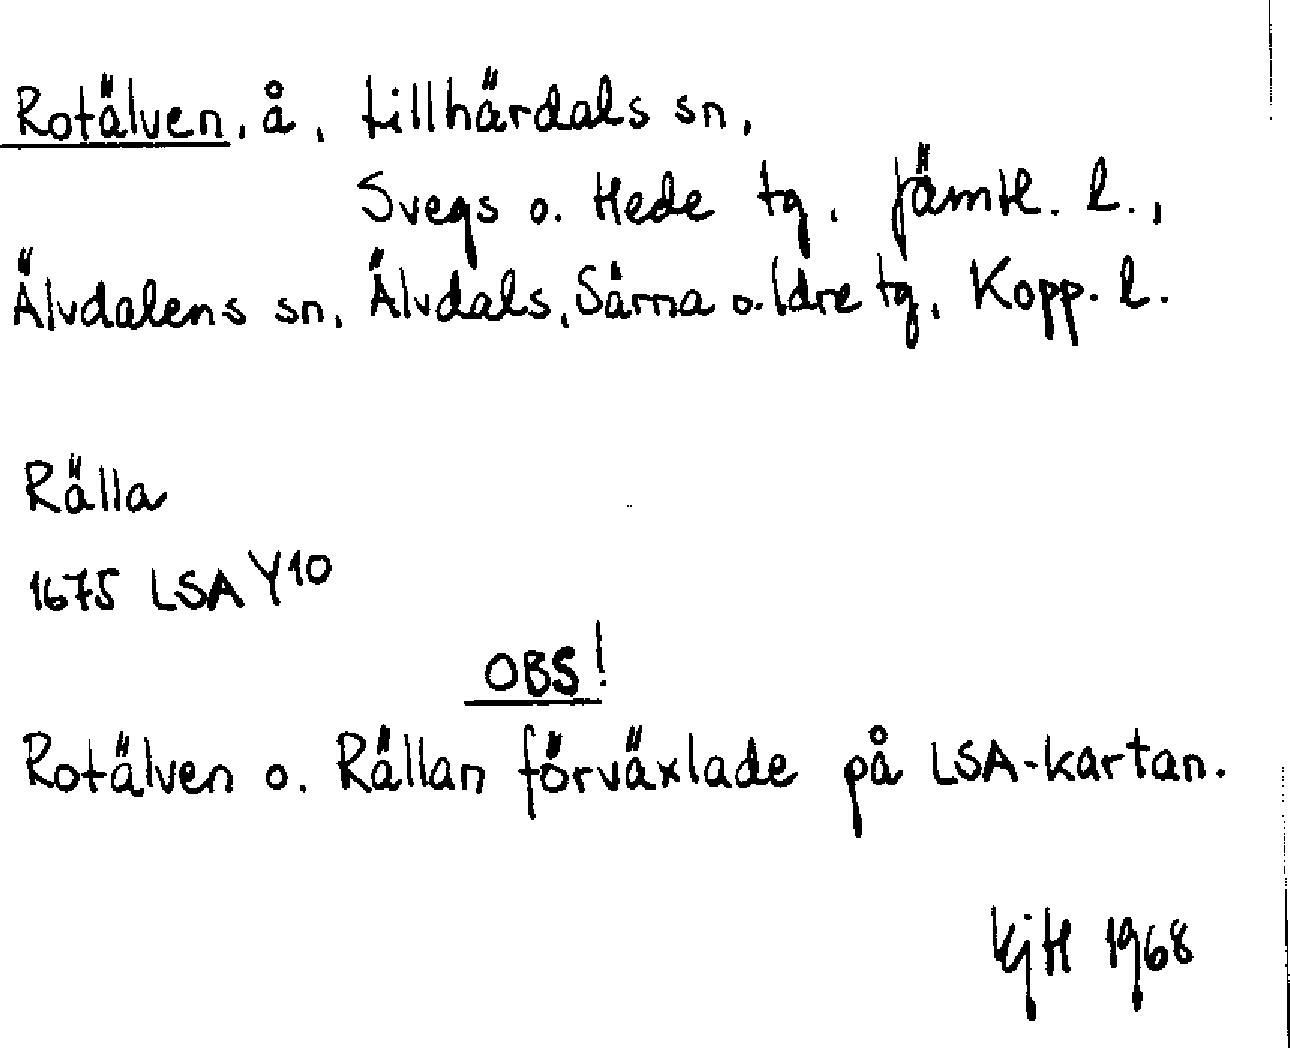 Rotälven, å, Lillhärdals sn,
Svegs o. Hede tg, Jämtl. l.,
Älvdalens sn, Älvdals, Särna o. Idre tg, Kopp. l.
Rälla
1675 LSA Y10
OBS!
Rotälven o. Rällan förväxlade på LSA-kartan.
KjH 1968